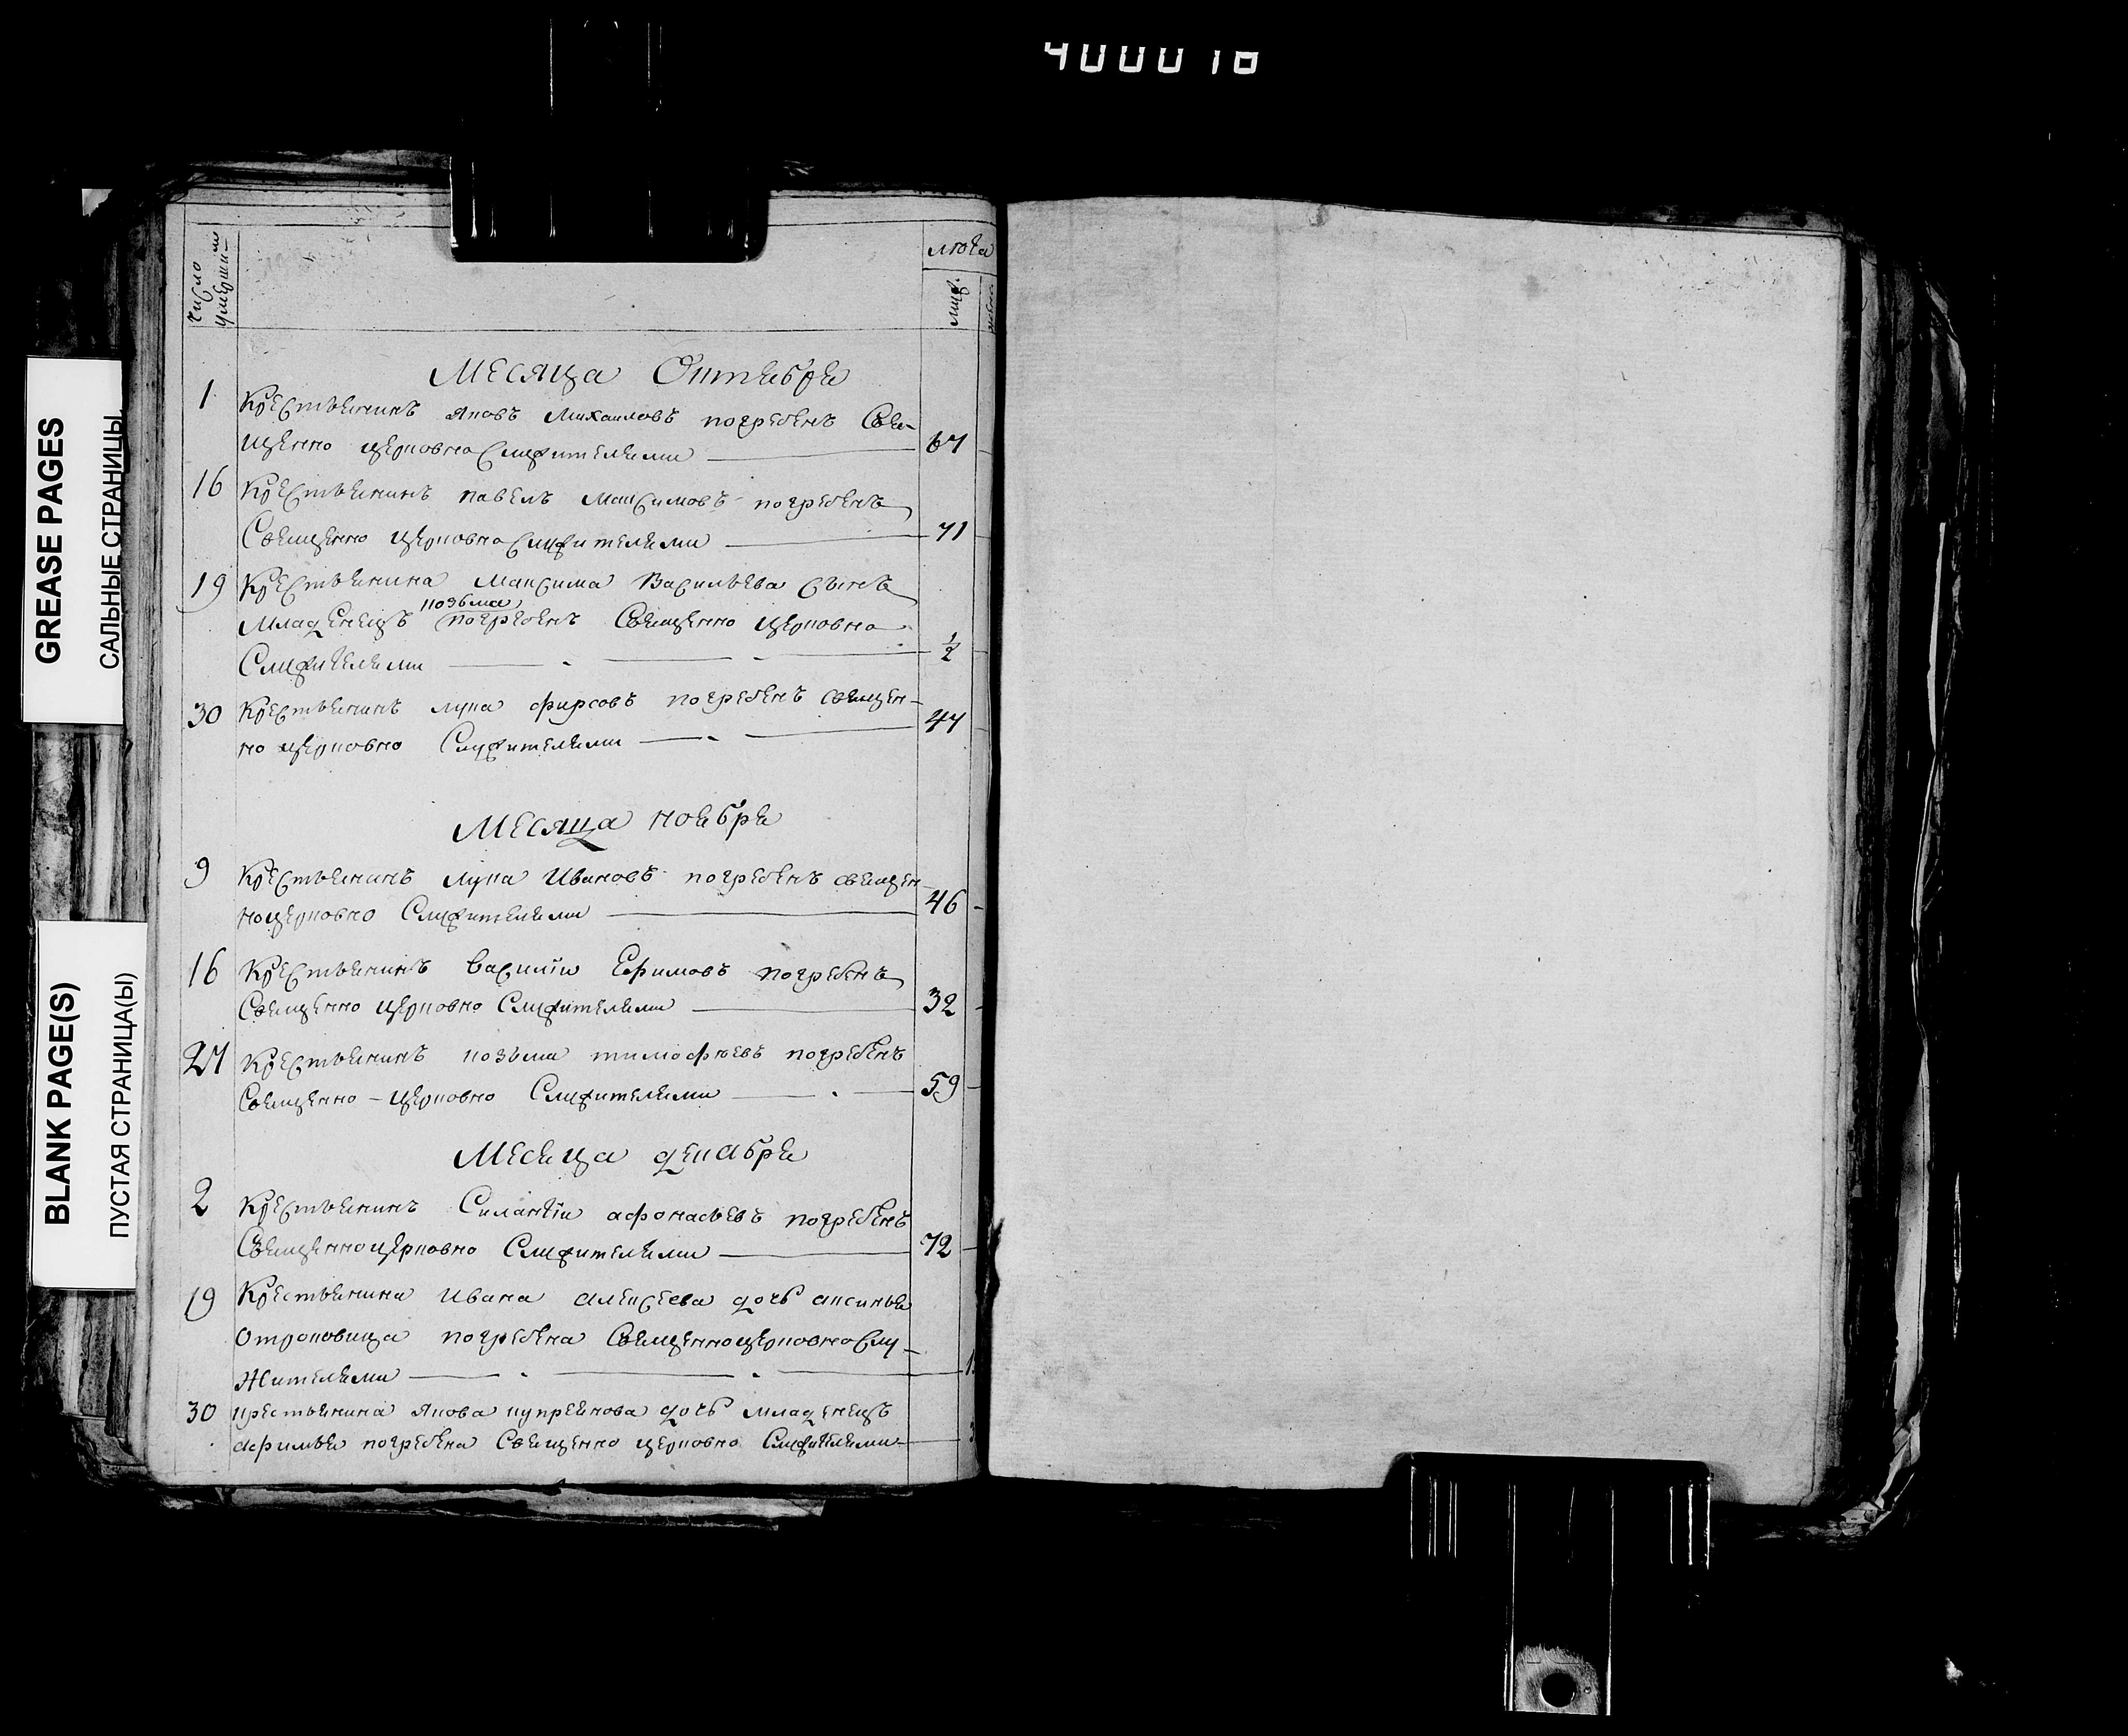 400016
GREASE PAGES
САЛЬНЫЕ СТРАНИЦЫ
BLANK PAGE(S)
ПУСТАЯ СТРАНИЦА(Ы)
Число
умерши
лѣта
муж.
Месяца Октября
1 Крестьянинъ Яковъ Михаиловъ погребенъ Свя-
щенно церковнослужителями 67
16 Крестьянинъ павелъ Максимовъ погребенъ
Священно церковнослужителями 71
19 Крестьянина Максима Васильева сынъ
козьма
Младенецъ погребенъ Священно церковно
Служителями 1/2
30 Крестьянинъ лука фирсовъ погребенъ священ-
но церковно Служителями 47
Месяца ноября
9 Крестьянинъ лука Ивановъ погребенъ священ-
ноцерковно Служителями 46
16 Крестьянинъ василїи Ефимовъ погребенъ
Священно церковно Служителями 32
27 Крестьянинъ козьма тимофѣевъ погребенъ
Священно-церковно Служителями 59
Месяца декабря
2 Крестьянинъ Силантїи афонасьевъ погребенъ
Священноцерковно Служителями 72
19 Крестьянина Ивана алексеева дочь аксинья
отроковица погребена Священноцерковнослу-
жителями
30 крестьянина Якова купреянова дочь младенецъ
афимья погребена Священно церковно Служителями